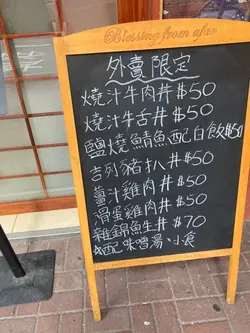 Blessing from afar
外賣限定
燒汁牛肉丼 $50
燒汁牛舌丼 $50
鹽燒鯖魚配白飯$50
吉列豬扒丼 $50
薑汁雞肉丼 $50
滑蛋雞肉丼 $50
雜錦魚生丼 $70
☆配味噌湯、小食